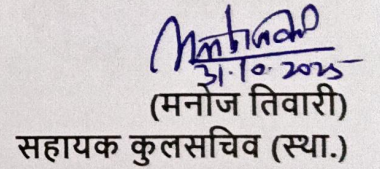 31.10.2025
(मनोज तिवारी)
सहायक कुलसचिव (स्था.)